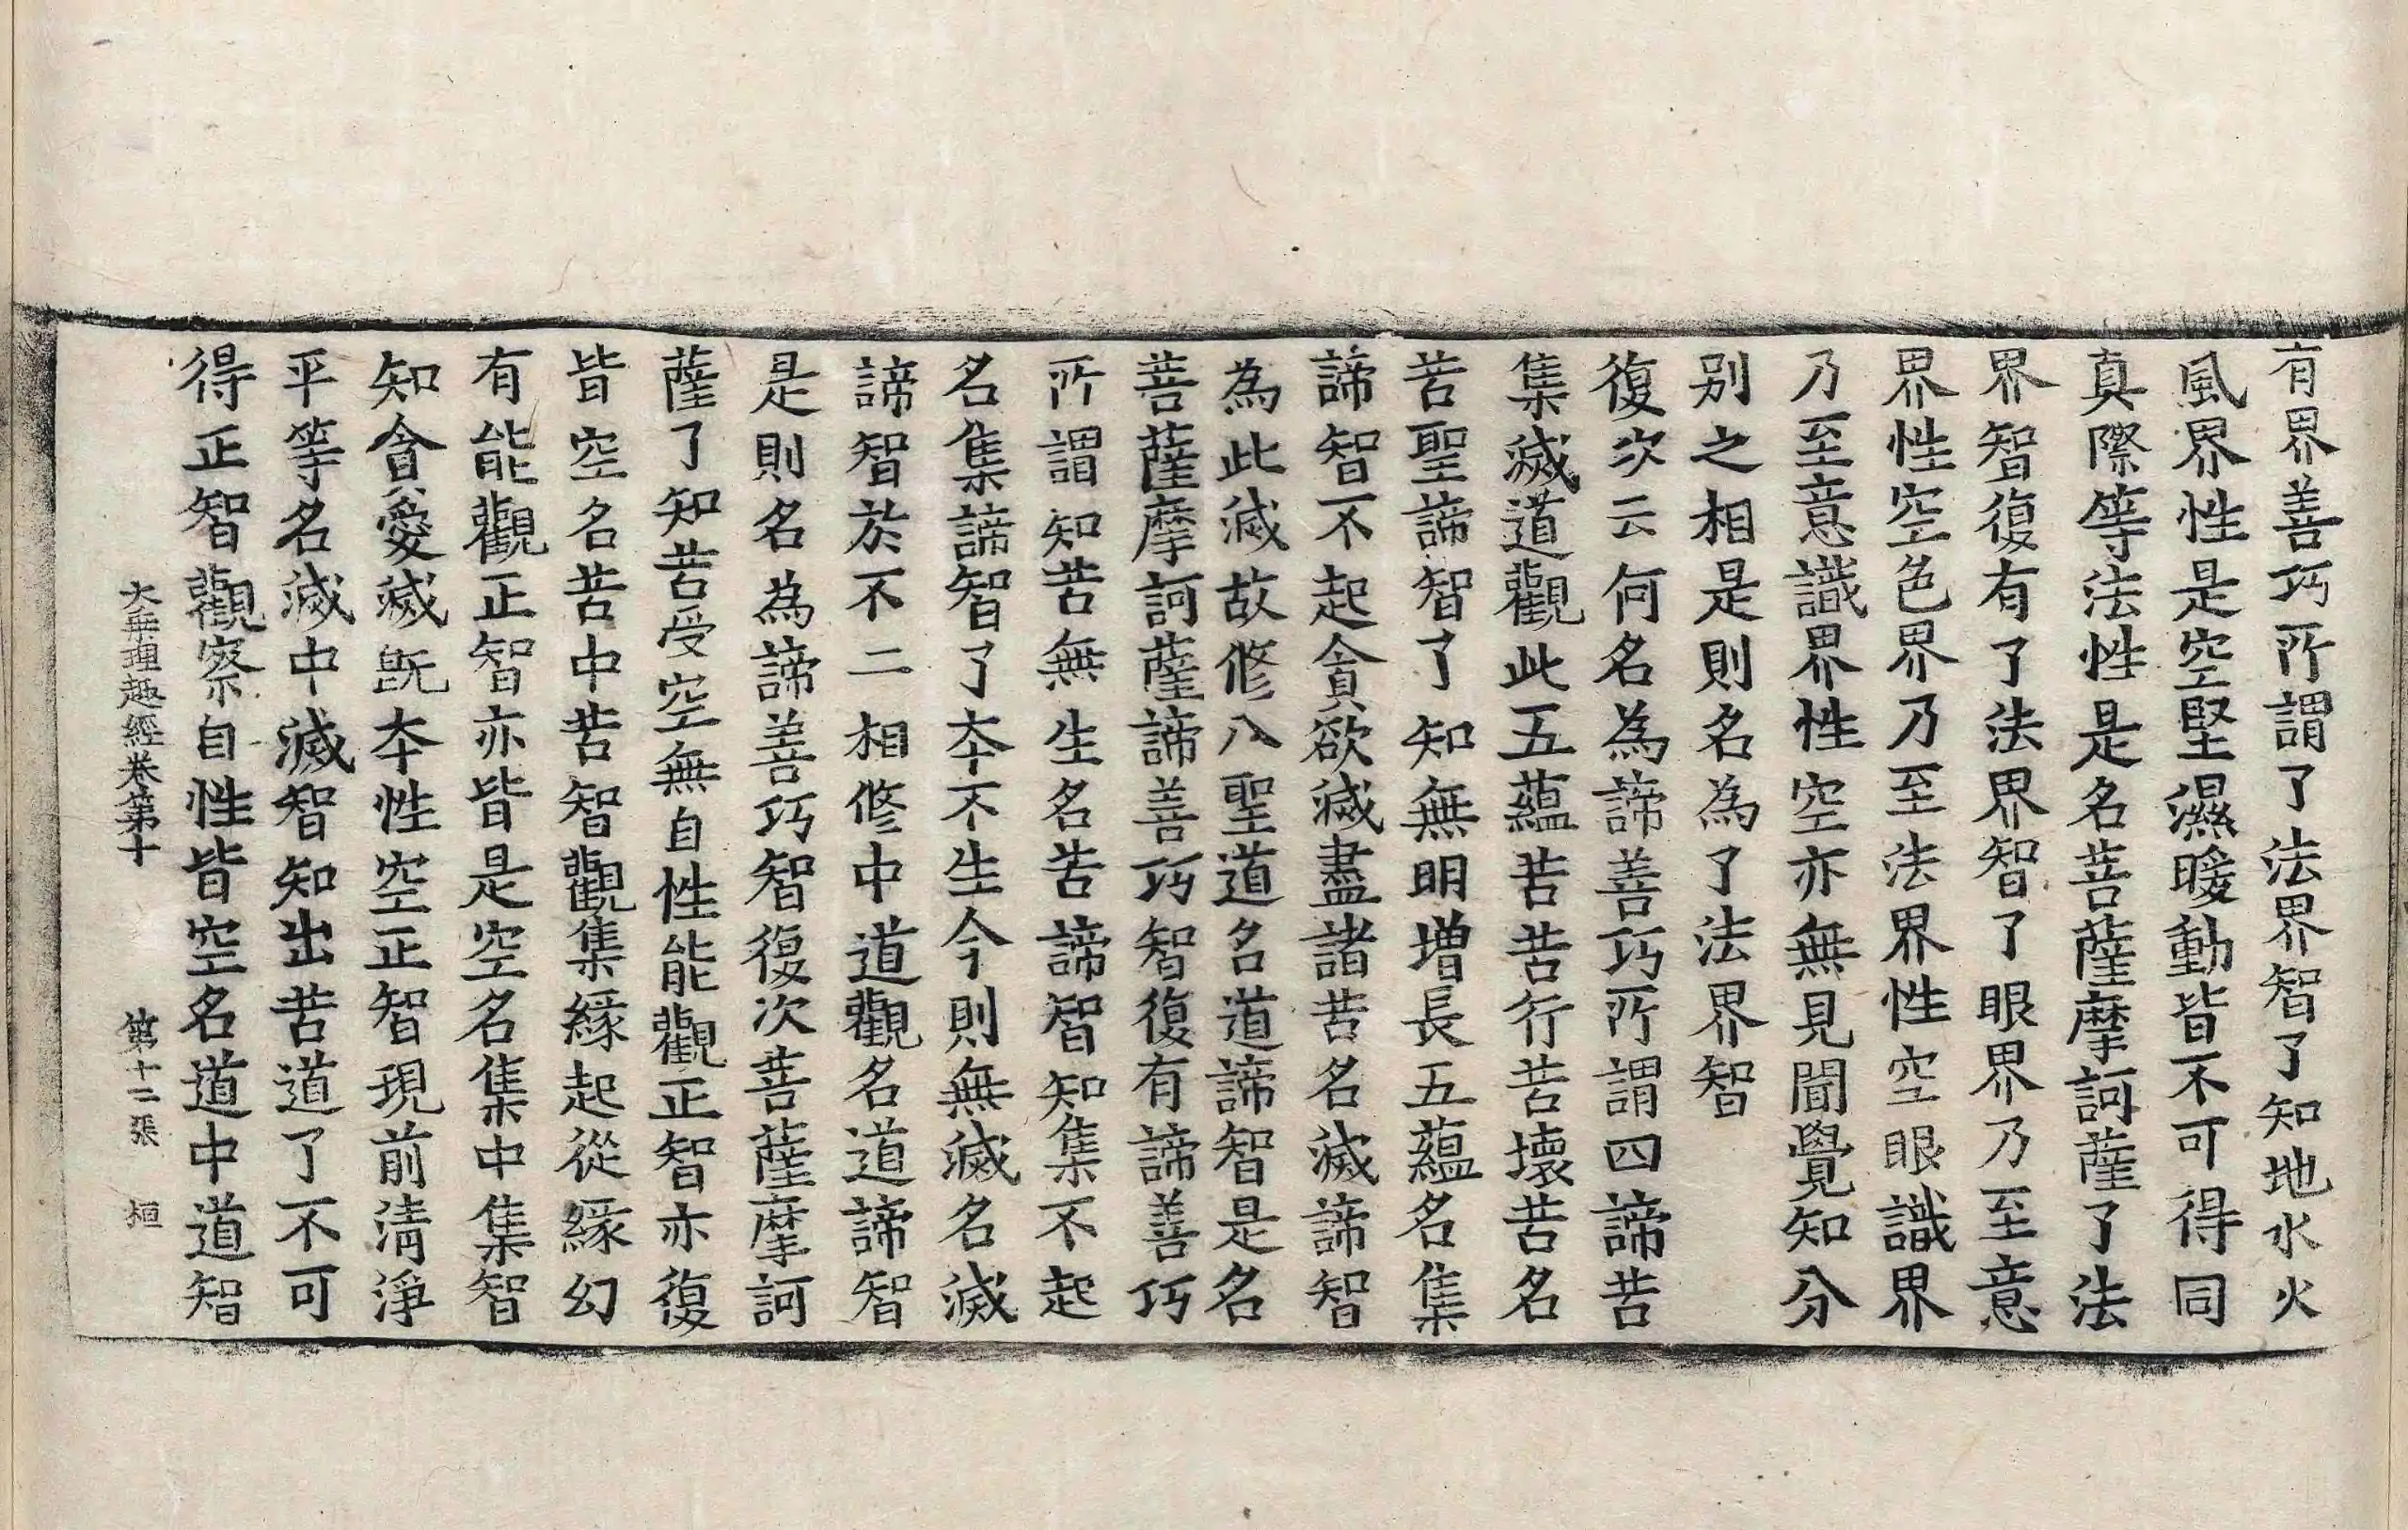 有界善巧所謂了法界智了知地水火
風界性是空堅濕暖動皆不可得同
真際等法性是名菩薩摩訶薩了法
界智復有了法界智了眼界乃至意
界性空色界乃至法界性空眼識界
乃至意識界性空亦無見聞覺知分
別之相是則名為了法界智
復次云何名為諦善巧所謂四諦苦
集滅道觀此五蘊苦苦行苦壞苦名
苦聖諦智了知無明增長五蘊名集
諦智不起貪欲滅盡諸苦名滅諦智
為此滅故修八聖道名道諦智是名
菩薩摩訶薩諦善巧智復有諦善巧
所謂知苦無生名苦諦智知集不起
名集諦智了本不生今則無滅名滅
諦智於不二相修中道觀名道諦智
是則名為諦善巧智復次菩薩摩訶
薩了知苦受空無自性能觀正智亦復
皆空名苦中苦智觀集緣起從緣幻
有能觀正智亦皆是空名集中集智
知貪愛滅既本性空正智現前清淨
平等名滅中滅智知出苦道了不可
得正智觀察自性皆空名道中道智
大乘理趣經卷第十 第十二張 桓